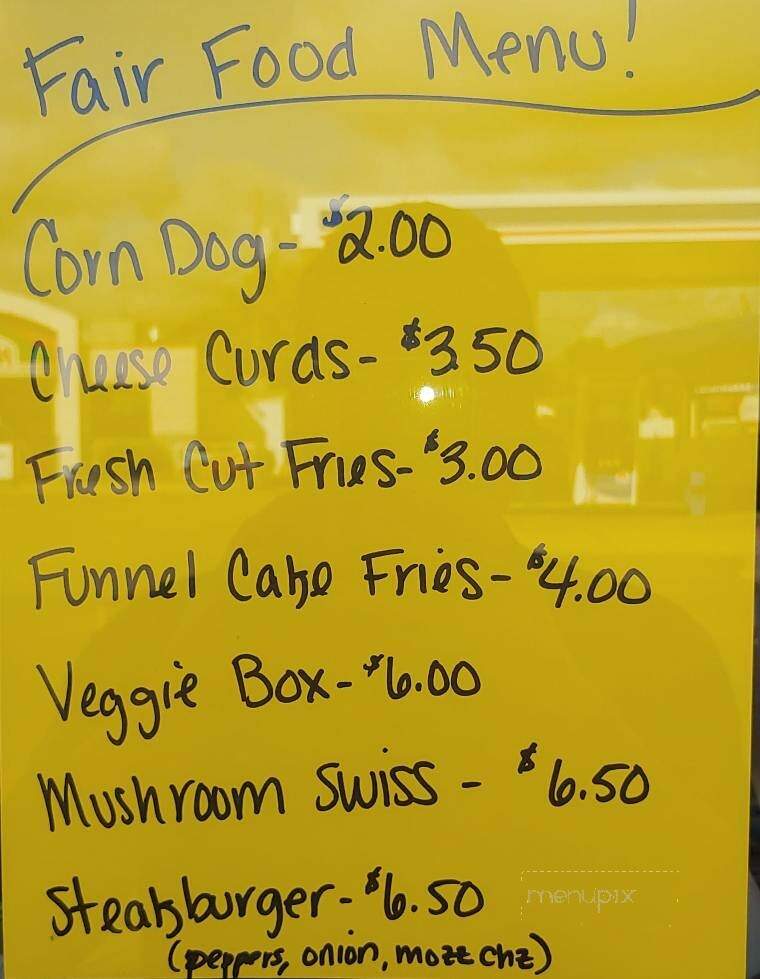 Fair Food Menu!
Corn Dog - $2.00
Cheese Curds - $3.50
Fresh Cut Fries - $3.00
Funnel Cake Fries - $4.00
Veggie Box - $6.00
Mushroom Swiss - $6.50
Steakburger - $6.50
(peppers, onion, mozz chz)
menupix